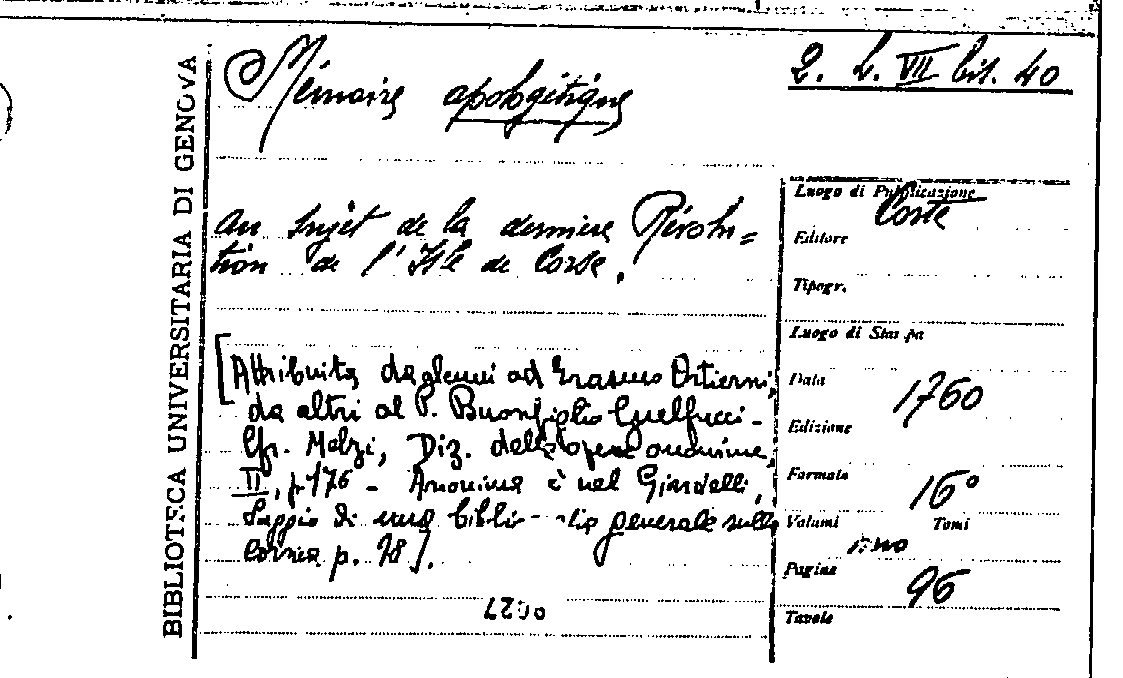 BIBLIOTECA UNIVERSITARIA DI GENOVA
Mémoire apologétique
2. L. VII bis. 40
au sujet de la dernière Révolu=
tion de l'Isle de Corse.
[Attribuita da alcuni ad Erasmo Ortierni,
da altri al P. Buonfiglio Guelfucci -
Cfr. Melzi, Diz. delle opere anonime,
II, p. 176 - Anonima è nel Giardelli,
Saggio di una generale sulla
Corsica p. 78].
Luogo di Pubblicazione
Corte
Editore
Tipogr.
Luogo di Stampa
Data 1760
Edizione
Formato 16°
Volumi Tomi
uno
Pagine 96
Tavole